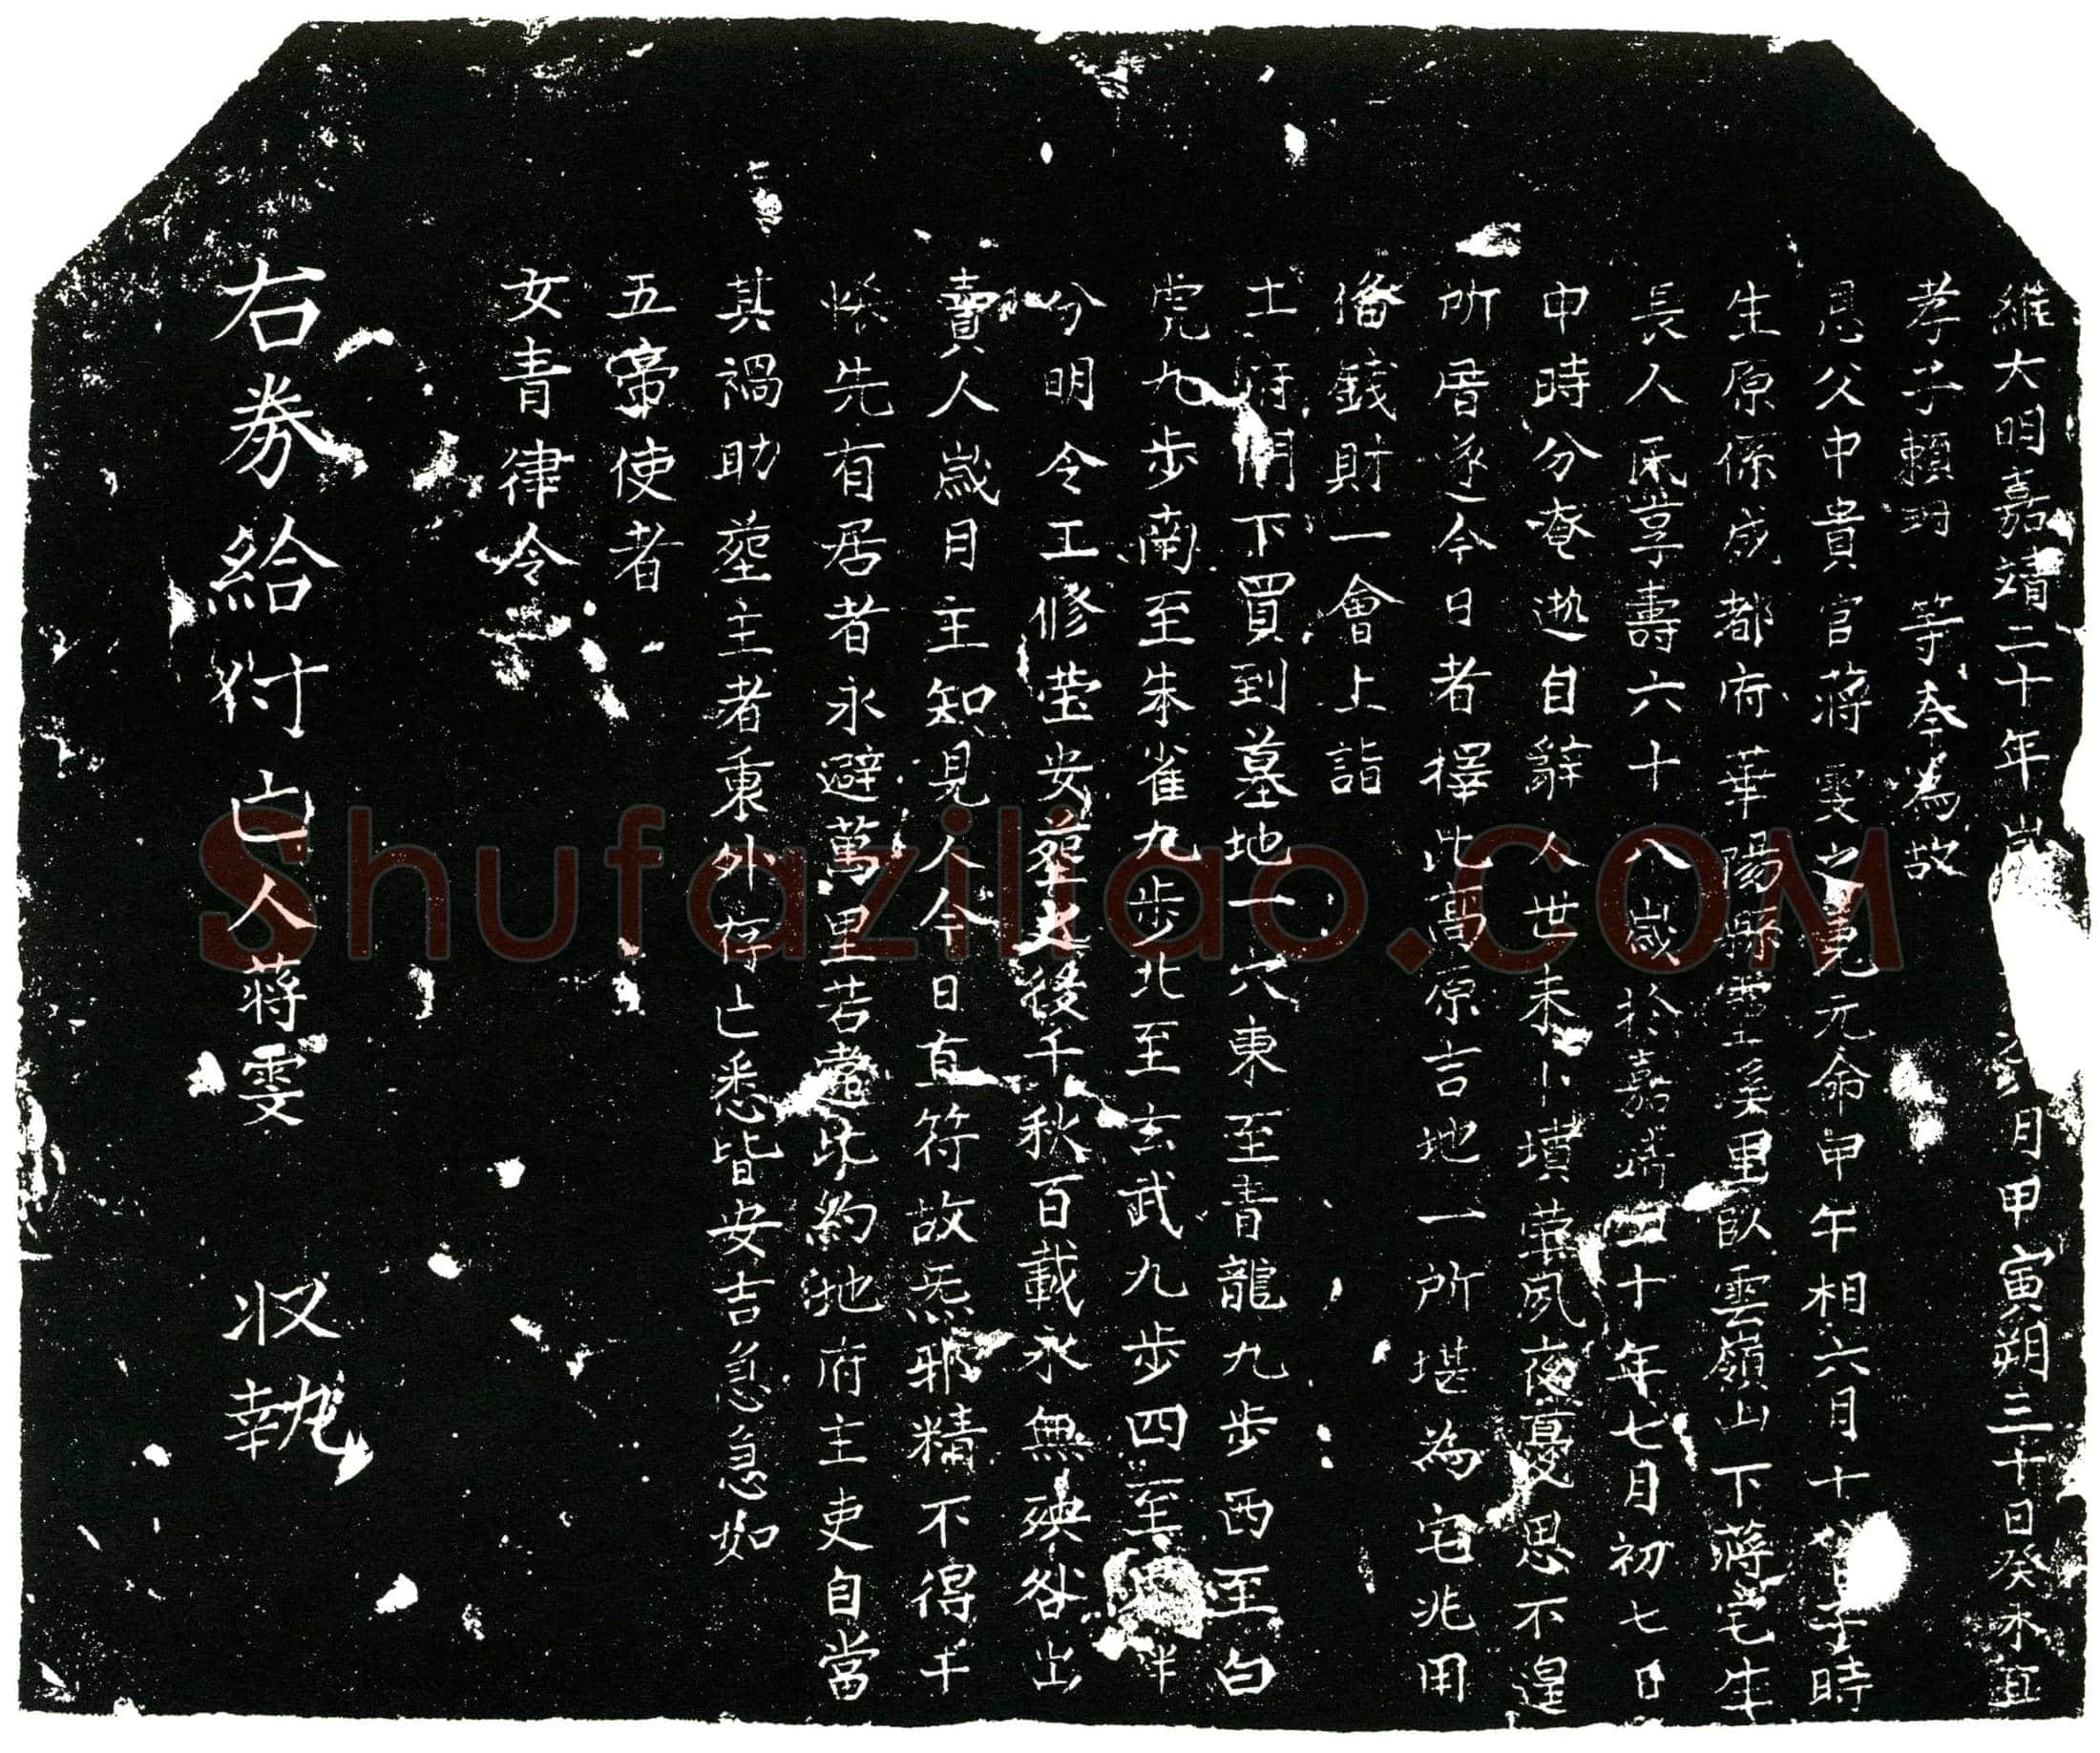 維大明嘉靖二十年歲月甲寅朔三十日癸未直
孝子賴 等夲為故
恩父中貴官蔣雯之䰟元命甲午相六月十日子時
生原係成都府華陽縣靈溪里臥雲嶺山下蔣宅生
長人氏享壽六十八歲於嘉靖二十年七月初七日
申時分奄逝自辭人世未卜墳塋夙夜憂思不遑
所厝遂今日者擇此高原吉地一所堪為宅兆用
俻錢財一會上詣
土府門下買到墓地一穴東至青龍九步西至白
虎九步南至朱雀九步北至玄武九步四至畔
分明令工修塋安塟之後千秋百載永無殃咎出
賣人歲月主知見人今日直符故炁邪精不得干
恠先有居者永避萬里若違此約地府主吏自當
其禍助塟主者裏外存亡悉皆安吉急急如
五帝使者
女青律令
右券給付亡人蔣雯 収執
Shufaziliao.COM